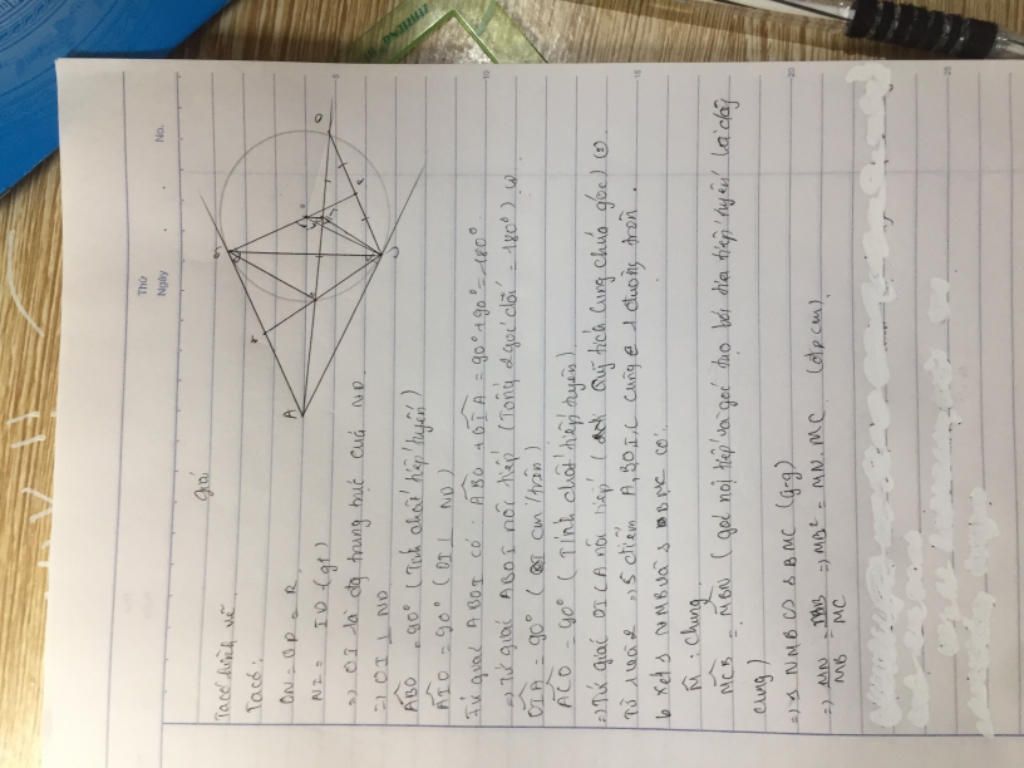 Thứ
Ngày
No.
Giải
Ta có hình vẽ
A
Ta có:
ON = OD = R
NI = ID (gt)
=> OI là đg trung trực của ND
=> OI ⊥ ND
ABO = 90° (Tính chất tiếp tuyến)
AIO = 90° (OI ⊥ ND)
Tứ giác ABOI có: ABO + OIA = 90° + 90° = 180°
=> Tứ giác ABOI nội tiếp (Tổng 2 góc đối = 180°) (1)
OIA = 90° (cmi trên)
ACO = 90° (Tính chất tiếp tuyến)
=> Tứ giác OICA nội tiếp (Quỹ tích cung chứa góc) (2)
Từ 1 và 2 => 5 điểm A, B, O, I, C cùng ∈ 1 đường tròn.
b Xét Δ NMB và Δ BMC có:
M: chung
MCB = MBN (góc nội tiếp và góc tạo bởi tia tiếp tuyến và dây
cung)
=> Δ NMB ∽ Δ BMC (g-g)
=> MN/MB = MB/MC => MB² = MN. MC (đpcm).
5
10
15
20
25